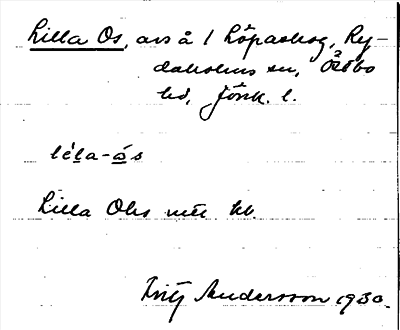 Lilla Os, avs å 1 Löpaskog, Ry-
daholms sn, Östbo
hd, Jönk. l.
lɩ́la-ás
Lilla Ohs utt. kb.
Fritz Andersson 1930.